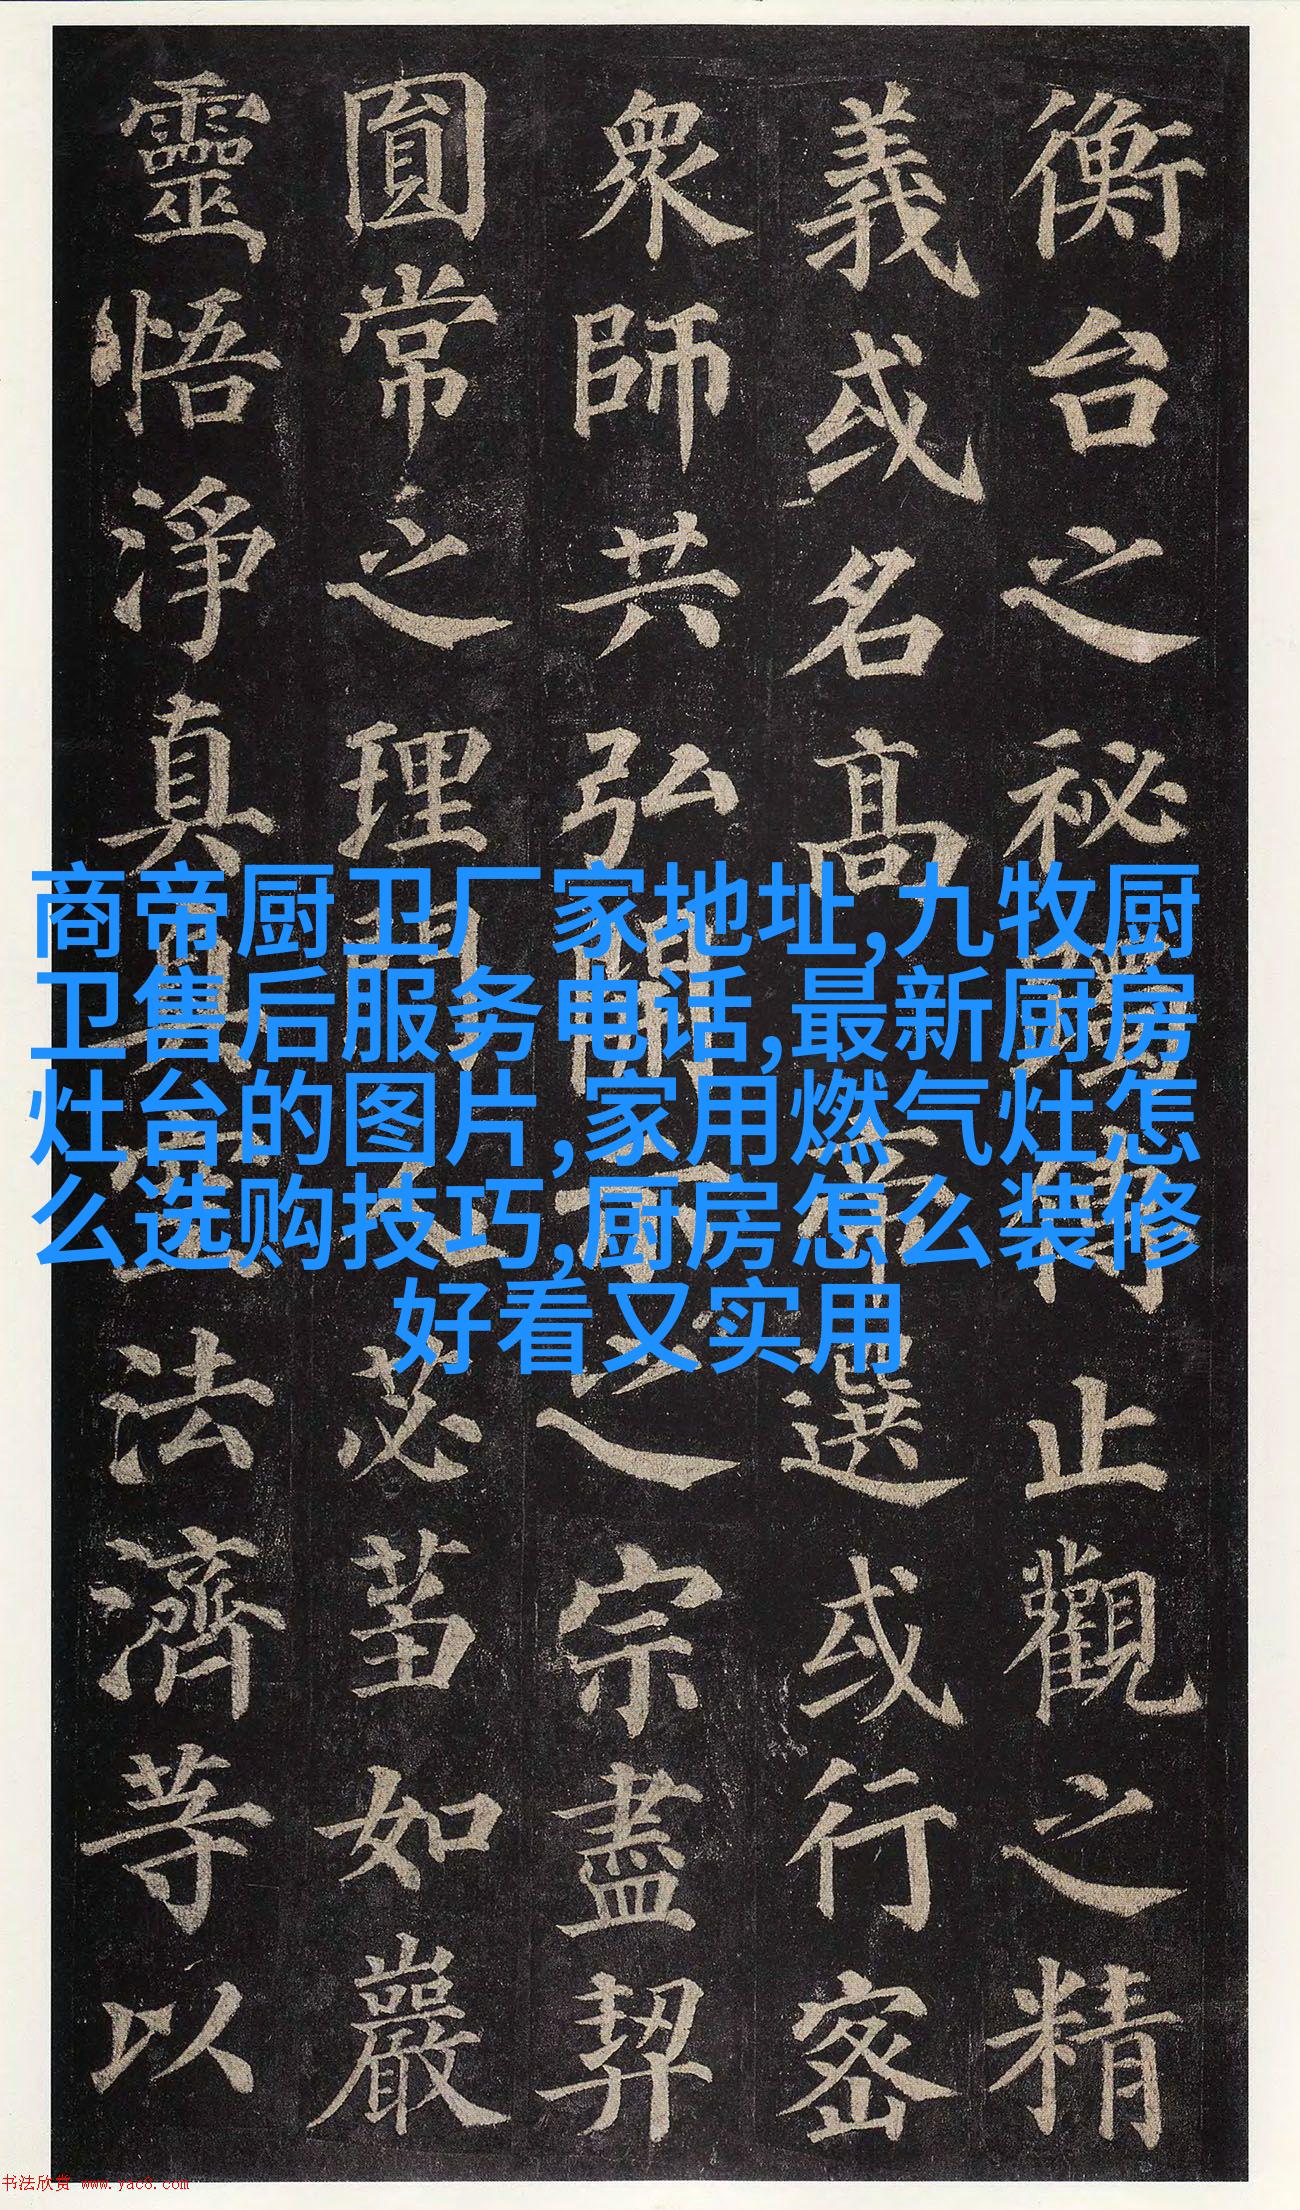 衡台之秘躅傳止觀之精
義或名高帝選或行密
衆師共弘開示之宗盡契
圓常之理門人苾芻如巖
靈悟淨真真空法濟等以
商帝厨卫厂家地址,九牧厨
卫售后服务电话,最新厨房
灶台的图片,家用燃气灶怎
么选购技巧,厨房怎么装修
好看又实用
书法欣赏 www.yac8.com